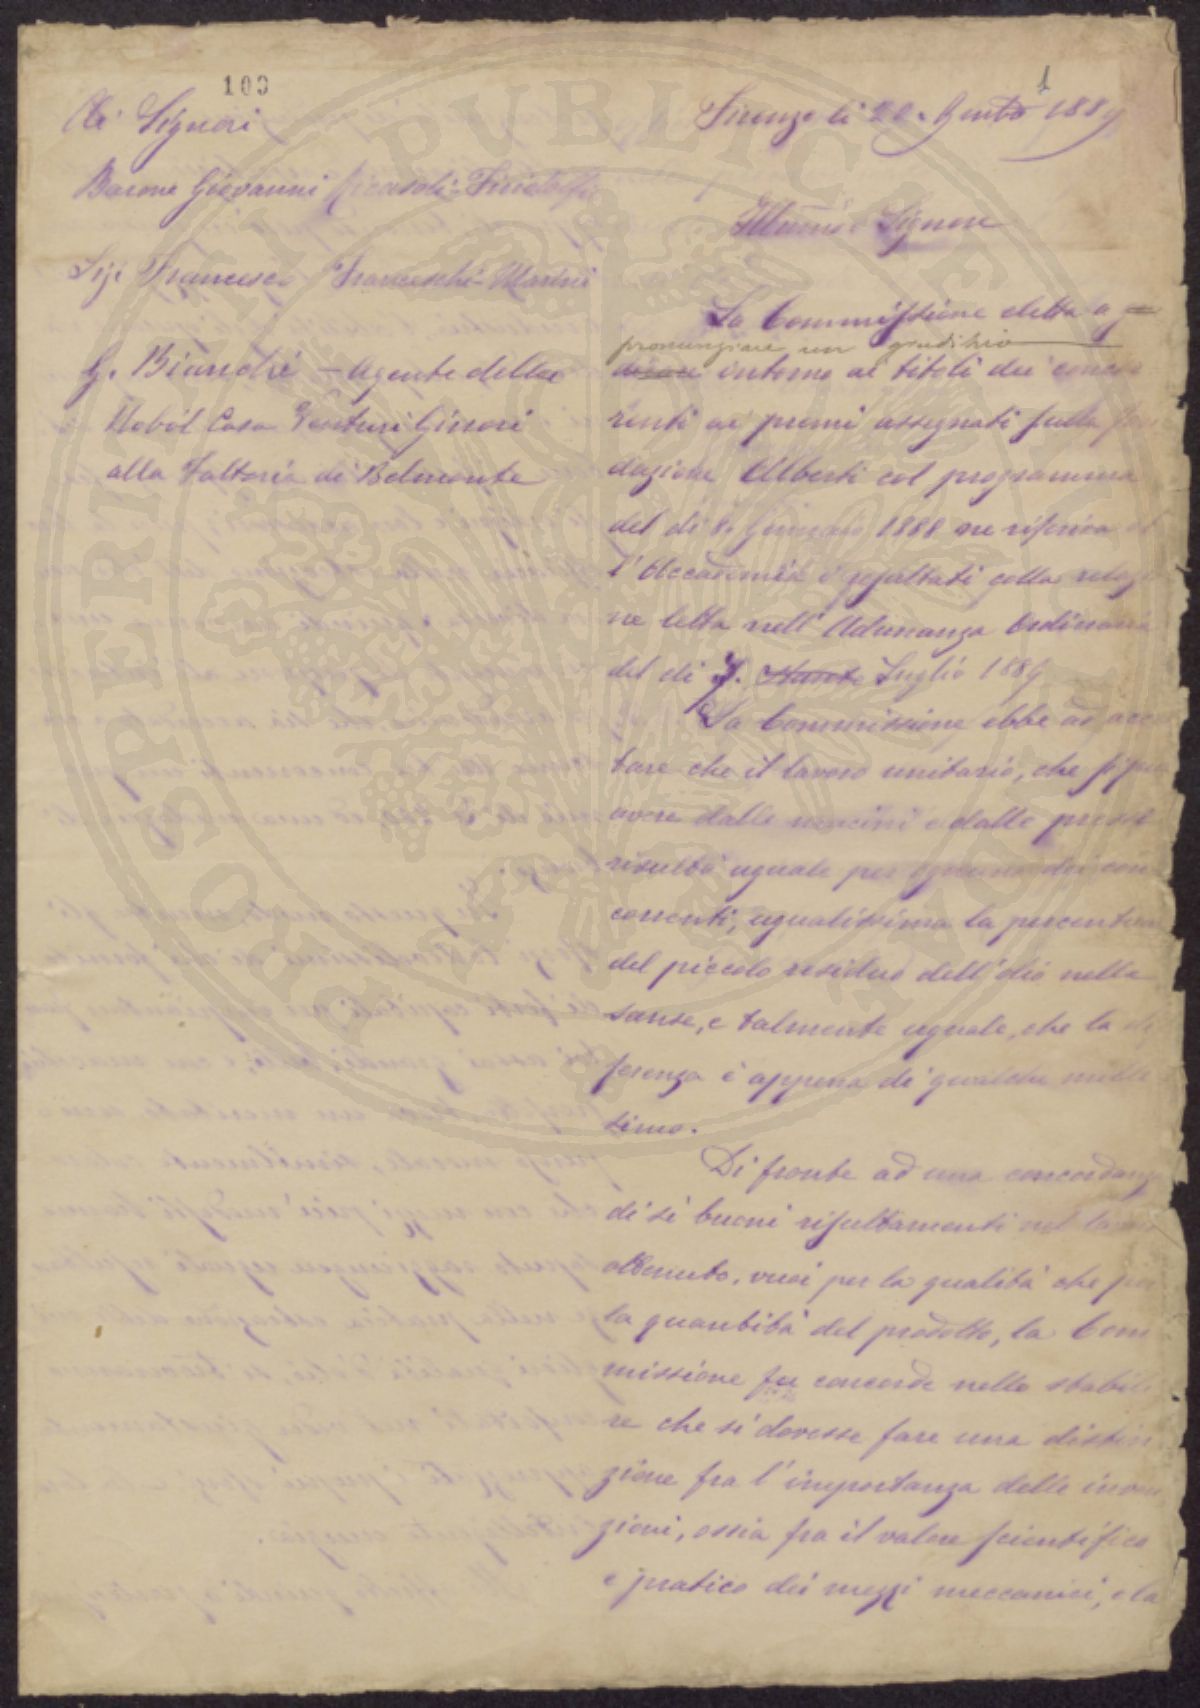 100
1
Ai Signori
Barone Giovanni Ricasoli-Firidolfi
Sig. Francesco Franceschi-Marini
G. Bianchi - Agente della
Nobil Casa Venturi Ginori
alla Fattoria di Belmonte
Firenze li 22. 1889
Illumo. Signore
La Commissione eletta a
pronunziare un giudizio
intorno ai titoli dei concor
renti ai premi assegnati sulla fon
dazione Alberti col programma
del dì 8. Gennaio 1888 ne riferiva al
l'Accademia i resultati colla relazio
ne letta nell'Adunanza Ordinaria
del dì 7. Luglio 1889
La Commissione ebbe ad accer
tare che il lavoro unitario, che si può
avere dalle macini e dalle presse
risultò uguale per ognuno dei con
correnti, ugualissima la percentuale
del piccolo residuo dell'olio nella
sanse, e talmente uguale, che la dif
ferenza è appena di qualche mille
simo.
Di fronte ad una concordanza
di sì buoni risultamenti nel lavoro
ottenuto, vuoi per la qualità che per
la quantità del prodotto, la Com
missione fu concorde nello stabili
re che si dovesse fare una distin
zione fra l'importanza delle inven
zioni, ossia fra il valore scientifico
e pratico dei mezzi meccanici, e la
PROSPERITATI PUBLICAE